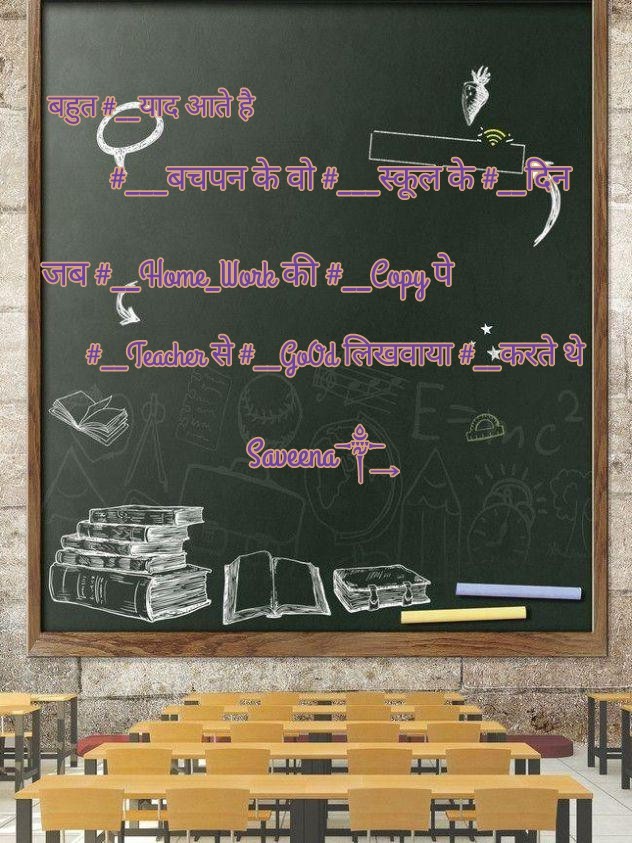 बहुत #__याद आते है
#___बचपन के वो #___स्कूल के #__दिन
जब #__Home_Work की #__Copy पे
#__Teacher से #__GoOd लिखवाया #__करते थे
E=mc²
Saveena